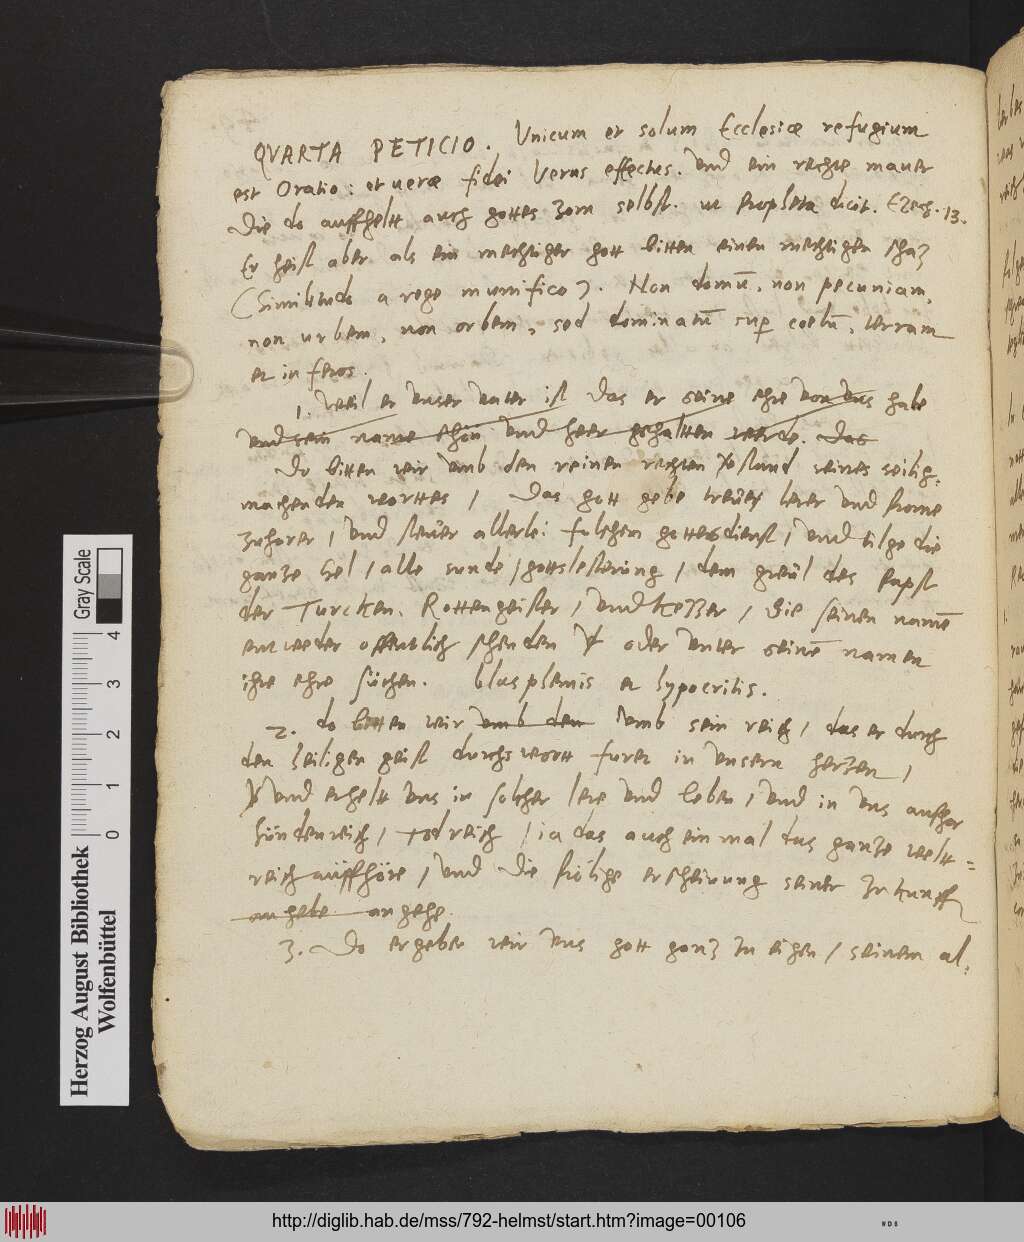 QVARTA PETICIO. Vnicum et solum Ecclesiæ refugium
est Oratio: et veræ fidei Verus effectus. Vnd ein rechte mauer
Die do auffhelt auch gottes zorn selbst. ut Propheta dicit. Ezech. 13.
Er heist aber als ein mechtiger gott bitten einen mechtigen schaz
(Similitudo a rege munifico). Non domū, non pecuniam,
non urbem, non orbem, sed dominatū sup coelū, terram
et inferos.
1. Weil er Vnser Vatter ist Das er seine ehre von Vns habe
Vnd sein name schön Vnd heer gehaltten werde. Das
Do bitten wir Vmb den reinen rechten Vorstand seines seilig-
machenden worttes / Das gott gebe treüer lerer Vnd frome
zuhörer / Vnd steüer allerlei falschem gottesdienst / Vnd tilge die
gantze hel / alle sunde / gottslesterüng / dem greül des Papst
der Turcken. Rottengeister / Vnd Ketzer / Die seinen namē
entweder offentlich schenden oder Vnter seinē namen
ihre ehre süchen. blasphemis et hypocritis.
2. do bitten wir Vmb den Vmb sein reich / das er durch
den heiligen geist durchs wortt furet in Vnsern hertzen /
Vnd erhelt Vns in solcher lere Vnd leben / Vnd in Vns auffhör
Sündenreich / todreich / ia das auch ein mal das gantze welt-
reich aüffhöre / Vnd Die frölige erscheinung seiner zukunfft
angehe angehe.
3. Do ergeben wir Vns gott gantz zu eigen / seinem al-
Herzog August Bibliothek
Wolfenbüttel
0 1 2 3 4
Gray Scale
http://diglib.hab.de/mss/792-helmst/start.htm?image=00106